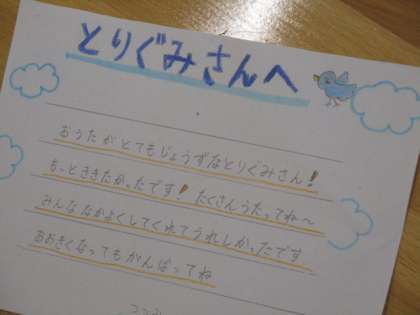 とりぐみさんへ
おうたがとてもじょうずなとりぐみさん！
もっとききたかったです！たくさんうたってね〜
みんななかよくしてくれてうれしかったです
おおきくなってもがんばってね